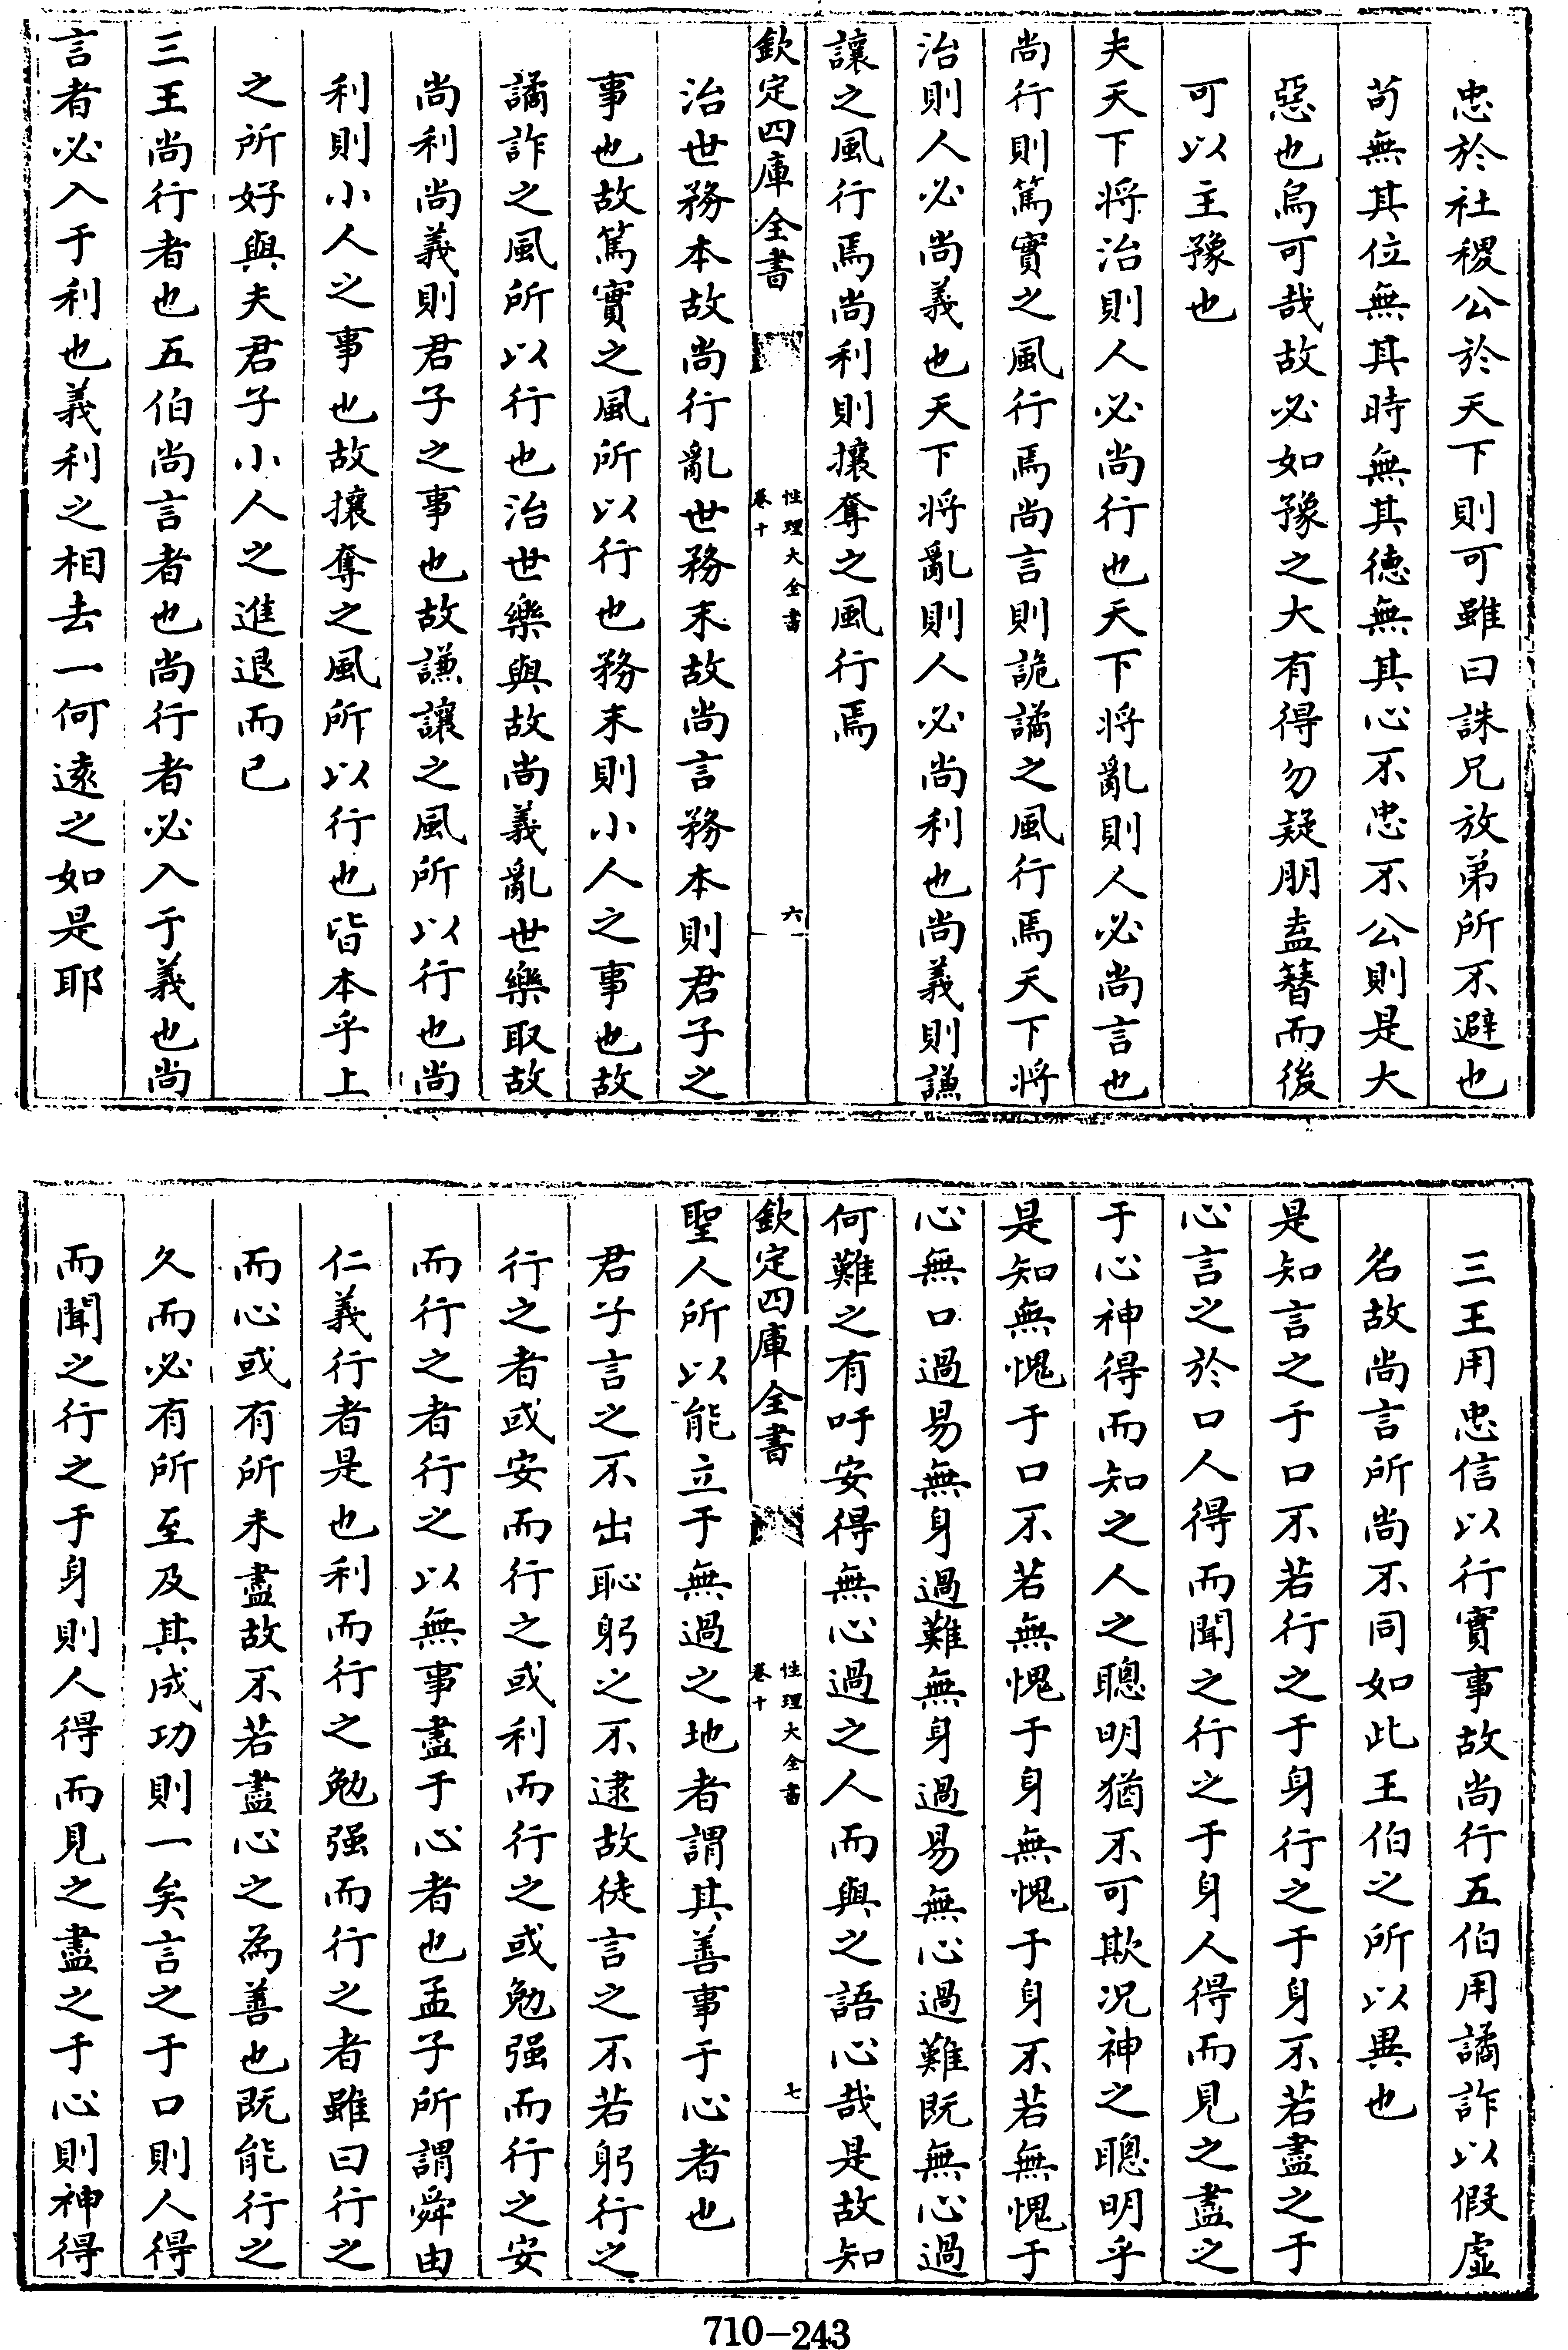 忠於社稷公於天下則可雖曰誅兄放弟所不避也
苟無其位無其時無其德無其心不忠不公則是大
惡也烏可哉故必如豫之大有得勿疑朋盍簪而後
可以主豫也
夫天下将治則人必尚行也天下将亂則人必尚言也
尚行則篤實之風行焉尚言則詭譎之風行焉天下将
治則人必尚義也天下将亂則人必尚利也尚義則謙
讓之風行焉尚利則攘奪之風行焉
欽定四庫全書
性理大全書
卷十
六
治世務本故尚行亂世務末故尚言務本則君子之
事也故篤實之風所以行也務末則小人之事也故
譎詐之風所以行也治世樂與故尚義亂世樂取故
尚利尚義則君子之事也故謙讓之風所以行也尚
利則小人之事也故攘奪之風所以行也皆本乎上
之所好與夫君子小人之進退而已
三王尚行者也五伯尚言者也尚行者必入于義也尚
言者必入于利也義利之相去一何逺之如是耶
三王用忠信以行實事故尚行五伯用譎詐以假虛
名故尚言所尚不同如此王伯之所以異也
是知言之于口不若行之于身行之于身不若盡之于
心言之於口人得而聞之行之于身人得而見之盡之
于心神得而知之人之聰明猶不可欺况神之聰明乎
是知無愧于口不若無愧于身無愧于身不若無愧于
心無口過易無身過難無身過易無心過難既無心過
何難之有吁安得無心過之人而與之語心哉是故知
欽定四庫全書
性理大全書
卷十
七
聖人所以能立于無過之地者謂其善事于心者也
君子言之不出恥躬之不逮故徒言之不若躬行之
行之者或安而行之或利而行之或勉强而行之安
而行之者行之以無事盡于心者也孟子所謂舜由
仁義行者是也利而行之勉强而行之者雖曰行之
而心或有所未盡故不若盡心之為善也既能行之
久而必有所至及其成功則一矣言之于口則人得
而聞之行之于身則人得而見之盡之于心則神得
710-243